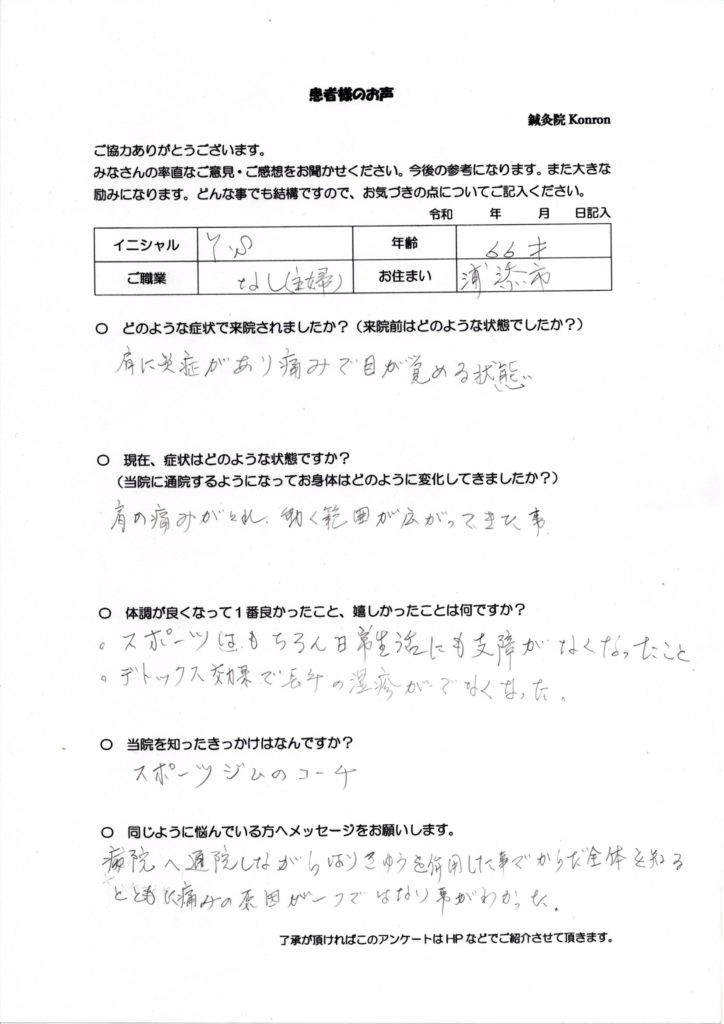 患者様のお声
鍼灸院 Konron
ご協力ありがとうございます。
みなさんの率直なご意見・ご感想をお聞かせください。今後の参考になります。また大きな
励みになります。どんな事でも結構ですので、お気づきの点についてご記入ください。
令和　　年　　月　　日記入
イニシャル　Y　年齢　66才
ご職業　なし(主婦)　お住まい　浦添市
○ どのような症状で来院されましたか？（来院前はどのような状態でしたか？）
肩に炎症があり痛みで目が覚める状態
○ 現在、症状はどのような状態ですか？
（当院に通院するようになってお身体はどのように変化してきましたか？）
肩の痛みがとれ、動く範囲が広がってきた事
○ 体調が良くなって１番良かったこと、嬉しかったことは何ですか？
。スポーツはもちろん日常生活にも支障がなくなったこと
。デトックス効果で長年の湿疹がでなくなった。
○ 当院を知ったきっかけはなんですか？
スポーツジムのコーチ
○ 同じように悩んでいる方へメッセージをお願いします。
病院へ通院しながらはりきゅうを併用した事でからだ全体を知る
とともに痛みの原因が一つではない事がわかった。
了承が頂ければこのアンケートは HP などでご紹介させて頂きます。